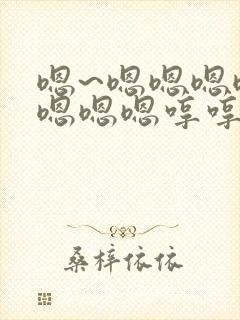 嗯~嗯嗯嗯
嗯嗯嗯哼哼
桑梓依依